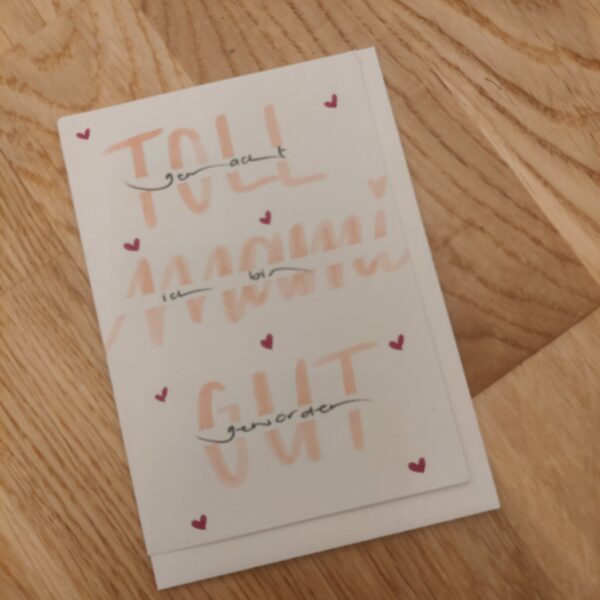 TOLL
gemacht
mami
ich bin
GUT
geworden